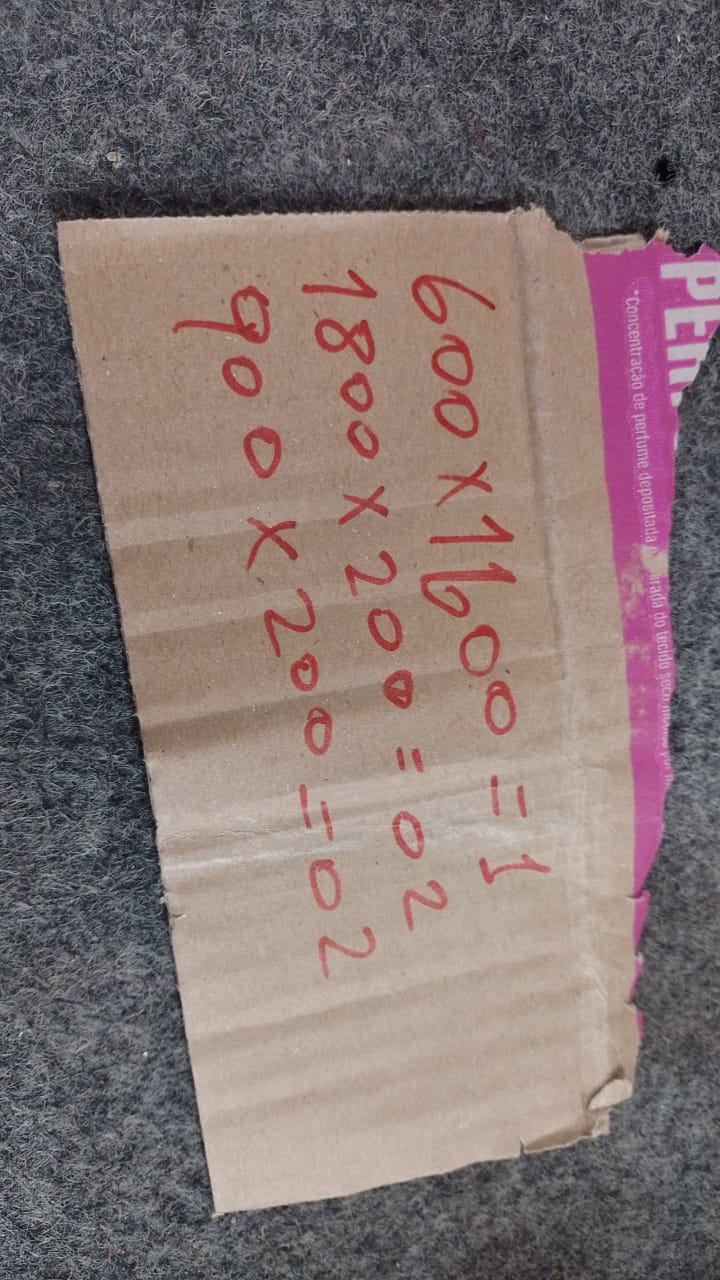 PER
*Concentração de perfume depositada
do tecido seco
600 x 1600 = 1
1800 x 200 = 02
900 x 200 = 02